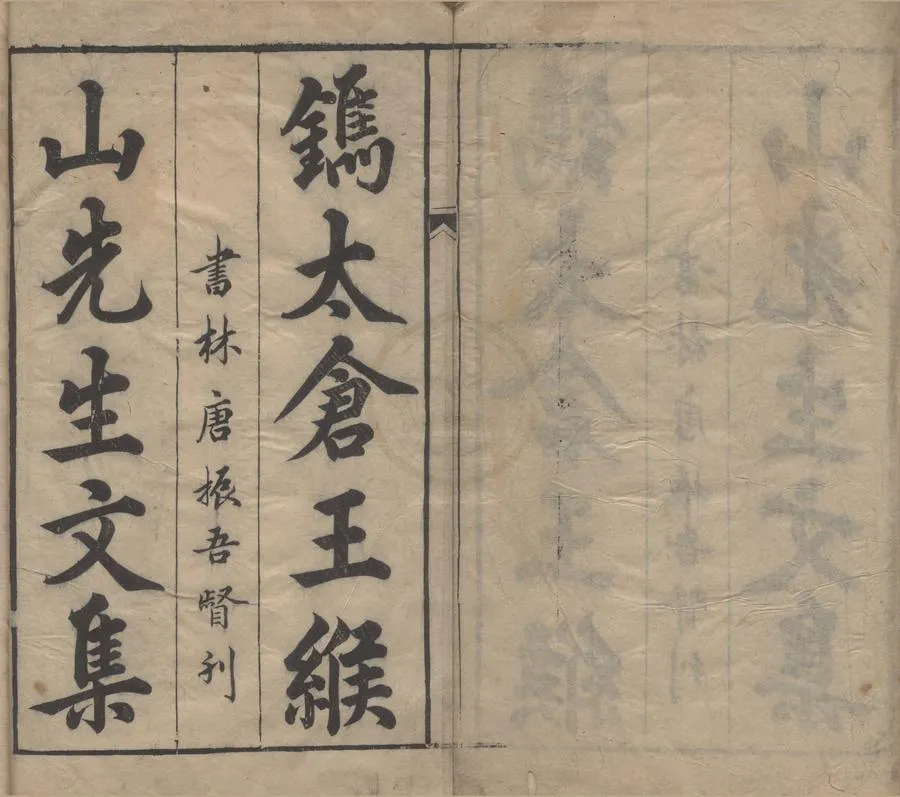 鐫太倉王緱
書林唐振吾督刊
山先生文集